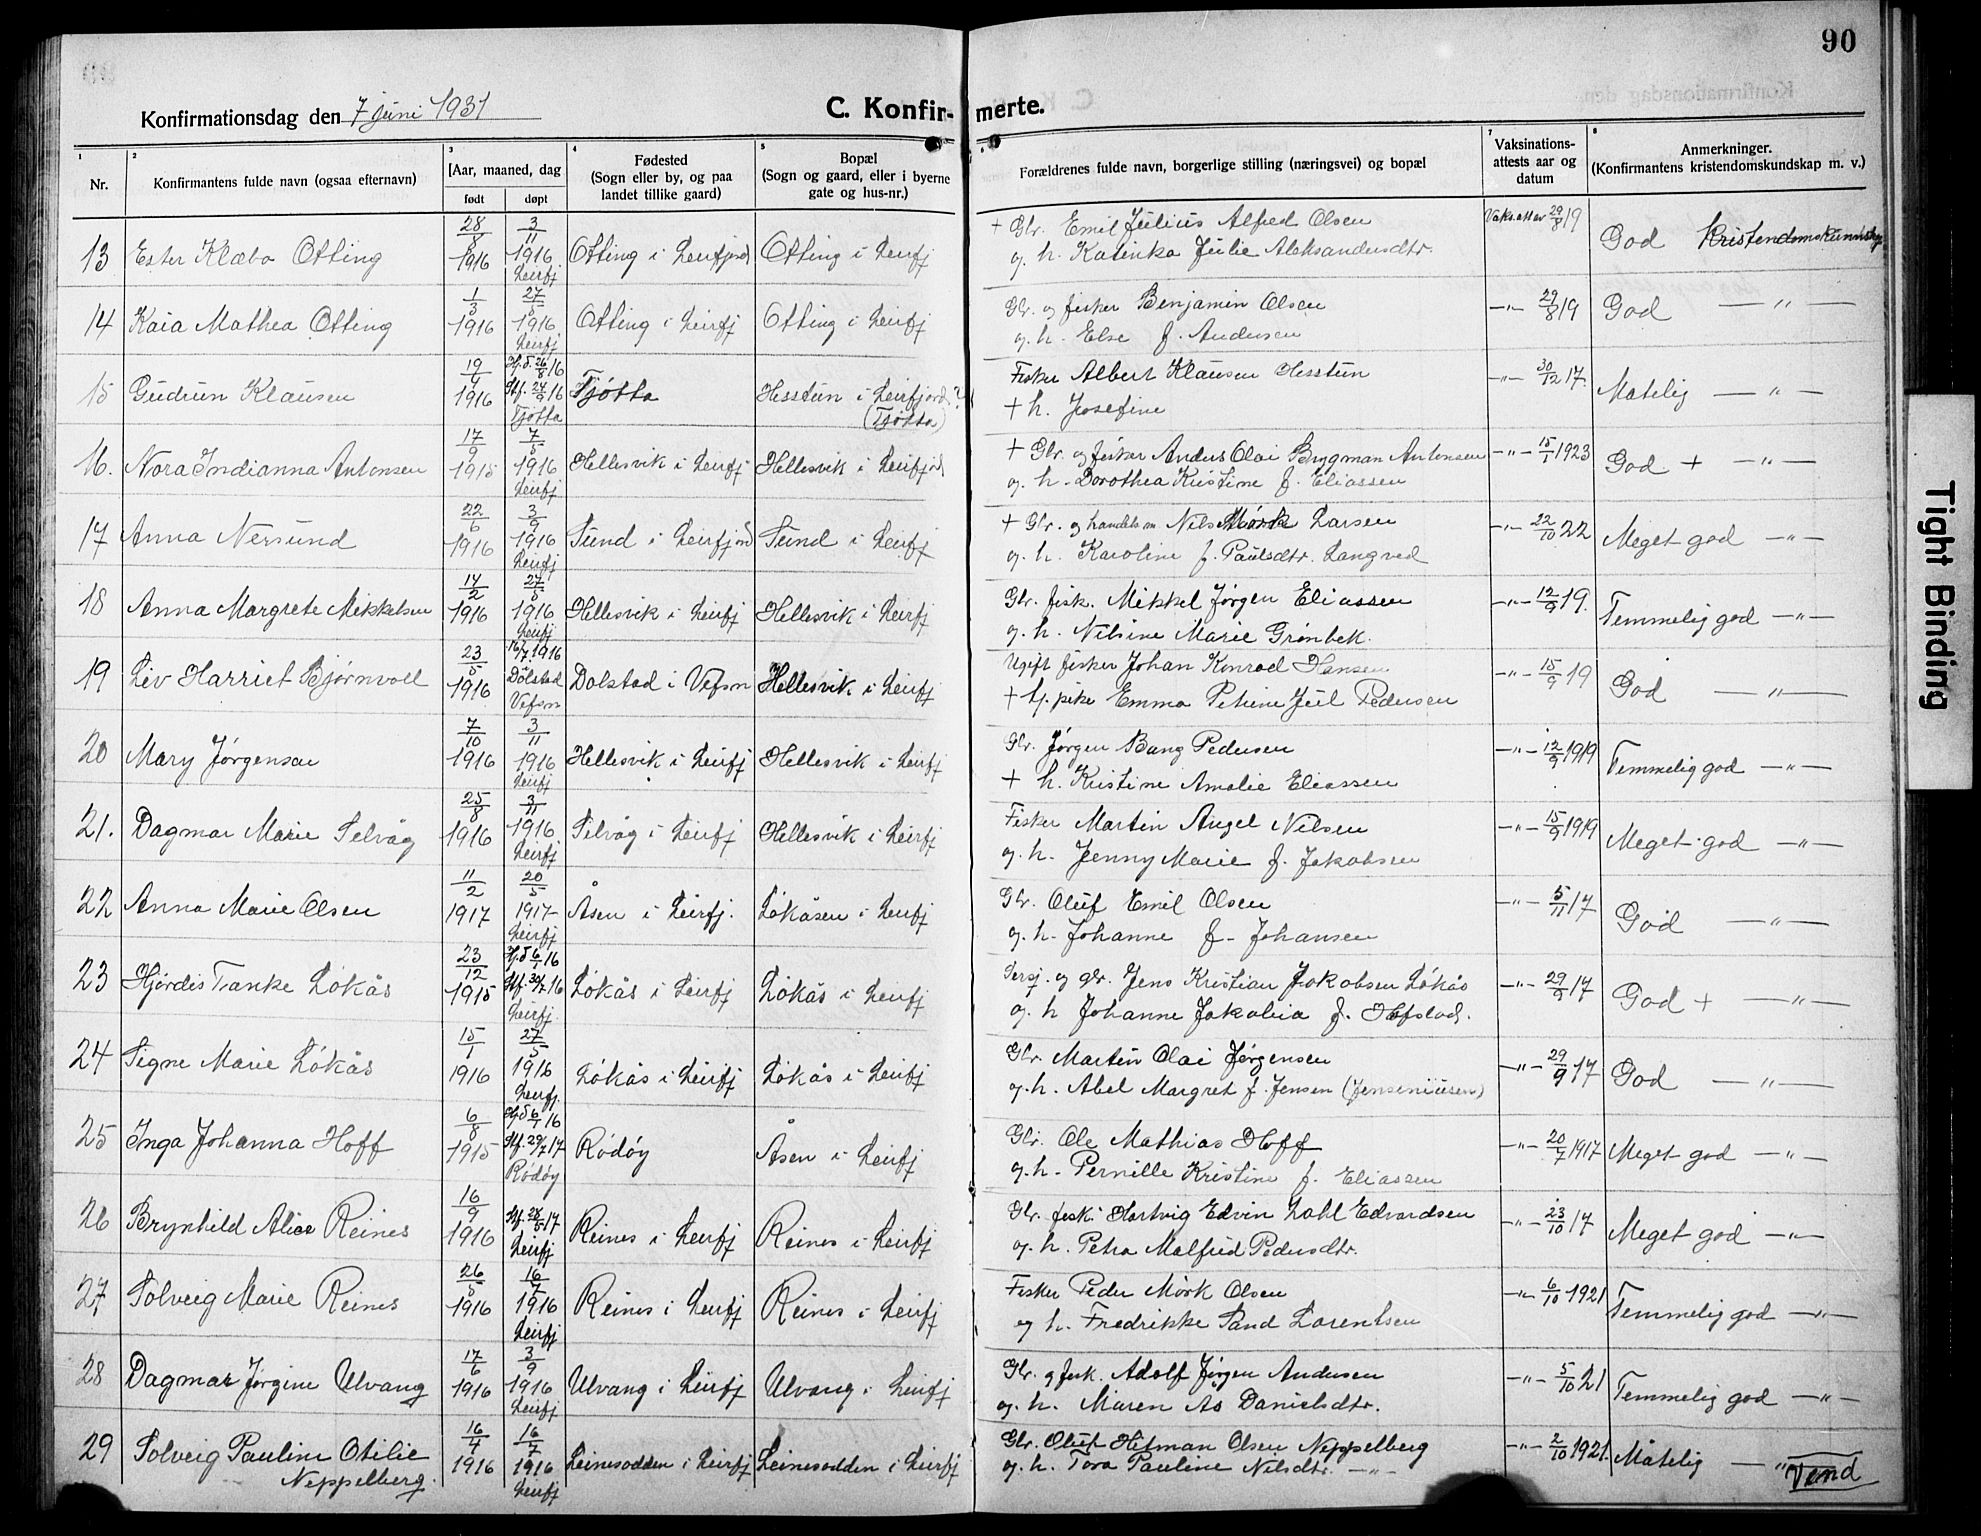 90
Konfirmationsdag den 7 juni 1931
C. Konfir- merte.
1 2 3 4 5 6 7 8
Nr. Konfirmantens fulde navn (ogsaa efternavn) Aar, maaned, dag født døpt Fødested (Sogn eller by, og paa landet tillike gaard) Bopæl (Sogn og gaard, eller i byerne gate og hus-nr.) Forældrenes fulde navn, borgerlige stilling (næringsvei) og bopæl Vaksinations-attests aar og datum Anmerkninger. (Konfirmantens kristendomskundskap m. v.)
13 Ester Klæbo Otting 28/8 1916 3/11 1916 Leirfj Otting i Leirfjord Otting i Leirfj + Gbr. Emil Julius Alfred Olsen
og h. Katinka Julie Aleksandersdtr. Vaks.att av 29/8 19 God Kristendomskunnskap
14 Kaia Mathea Otting 1/3 1916 27/5 1916 Leirfj Otting i Leirfj Otting i Leirfj Gbr. og fisker Benjamin Olsen
og h. Else f. Andersen —"— 29/8 19 God —"—
15 Gudrun Klausen 1916 Hj.d. 26/8 16 Stf. 24/9 16 Tjøtta Tjøtta Hesstun i Leirfjord? (Tjøtta) Fisker Albert Klausen Hesstun
+ h. Josefine —"— 30/12 17. Måtelig —"—
16. Nora Indianna Antonsen 17/9 1915 7/5 1916 Leirfj Hellesvik i Leirfj Hellesvik i Leirfjord + Gbr. og fisker Anders Olai Brygman Antonsen
og h. Dorothea Kristine f. Eliassen —"— 15/1 1923 God + —"—
17 Anna Nersund 22/6 1916 3/9 1916 Leirfj Sund i Leirfjord Sund i Leirfj + Gbr. og handelsm. Nils Mørk Larsen
og h. Karoline f. Paulsdtr. Langved —"— 22/10 22 Meget god —"—
18 Anna Margrete Mikkelsen 14/2 1916 27/5 1916 Leirfj Hellesvik i Leirfj Hellesvik i Leirfj Gbr. fisk. Mikkel Jørgen Eliassen
og h. Nilsine Marie Grønbek. —"— 12/9 19. Temmelig god —"—
19 Liv Harriet Bjørnvoll 23/5 1916 16/7 1916 Dolstad Vefsn Dolstad i Vefsn Hellesvik i Leirfj Ugift fisker Johan Konrad Hansen
+ tj. pike Emma Petrine Juul Pedersen —"— 15/9 19 God —"—
20 Mary Jørgensen 7/10 1916 3/11 1916 Leirfj Hellesvik i Leirfj Hellesvik i Leirfj Gbr. Jørgen Bang Pedersen
+ h. Kristine Amalie Eliassen —"— 12/9 1919 Temmelig god —"—
21. Dagmar Marie Selvåg 25/8 1916 3/11 1916 Leirfj Selvåg i Leirfj Hellesvik i Leirfj Fisker Martin Angel Nilsen
og h. Jenny Marie f. Jakobsen —"— 15/9 1919 Meget god —"—
22 Anna Marie Olsen 11/2 1917 20/5 1917 Leirfj Åsen i Leirfj. Løkåsen i Leirfj Gbr. Oluf Emil Olsen
og h. Johanne f. Johansen —"— 5/11 17 God —"—
23 Hjørdis Tranke Løkås 23/12 1915 Hj.d. 6/1 16 Stf. 30/7 16 Leirfj. Løkås i Leirfj Løkås i Leirfj Sersj. og gbr. Jens Kristian Jakobsen Løkås
og h Johanne Jakobia f. Hofstad. —"— 29/9 17 God + —"—
24 Signe Marie Løkås 15/1 1916 27/5 1916 Leirfj. Løkås i Leirfj Løkås i Leirfj Gbr. Martin Olai Jørgensen
og h. Abel Margret f. Jensen (Jenseniusen) —"— 29/9 17 God —"—
25 Inga Johanna Hoff 6/8 1915 Hj.d. 6/1 16 Stf. 29/7 17 Rødøy Rødøy Åsen i Leirfj Gbr. Ole Mathias Hoff
og h. Pernille Kristine f. Eliassen —"— 20/7 1917 Meget god —"—
26 Brynhild Alice Reines 16/9 1916 Stf. 28/5 17 Leirfj Reines i Leirfj Reines i Leirfj Gbr. fisk. Hartvig Edvin Dahl Edvardsen
og h. Petra Malfrid Pedersdtr. —"— 23/10 17 Meget god —"—
27 Solveig Marie Reines 26/5 1916 16/7 1916 Leirfj Reines i Leirfj Reines i Leirfj Fisker Peder Mørk Olsen
og h. Fredrikke Sand Lorentsen —"— 6/10 1921 Temmelig god —"—
28 Dagmar Jørgine Ulvang 17/6 1916 3/9 1916 Leirfj Ulvang i Leirfj Ulvang i Leirfj Gbr. og fisk. Adolf Jørgen Andersen
og h. Maren Ås Danielsdtr. —"— 5/10 21 Temmelig god —"—
29 Solveig Pauline Otilie
Neppelberg. 16/4 1916 16/7 1916 Leirfj Leinesodden i Leirfj Leinesodden i Leirfj Gbr. Oluf Hitman Olsen Neppelberg
og h. Tora Pauline Nilsdtr. —"— —"— 2/10 1921. Måtelig —"—
Vend
Tight Binding